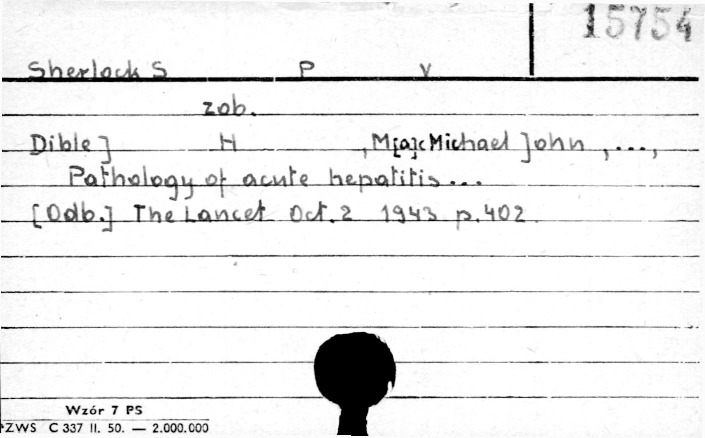 15754
Sherlock S P V
zob.
Dible J H , M[a]cMichael John , ...,
Pathology of acute hepatitis...
[Odb.] The Lancet Oct. 2 1943 p. 402
Wzór 7 PS
PZWS C 337 II. 50. — 2.000.000